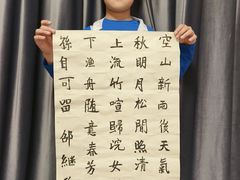 空山新雨後天氣
秋明月松間照清
上流竹喧歸浣女
下漁舟随意春芳
孫自可留 邵繼